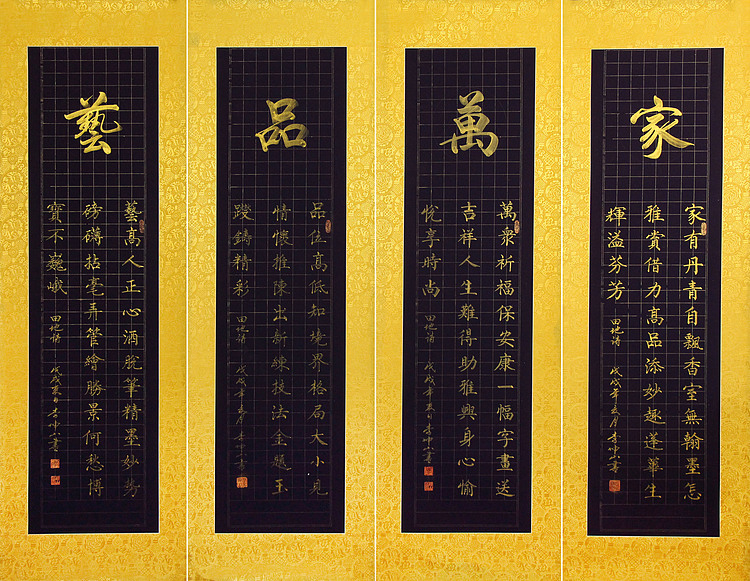 家
家有丹青自飄香室無翰墨怎
雅賞借力高品添妙趣蓬蓽生
輝溢芬芳 田地詩 戊戌年 書
萬
萬衆祈福保安康一幅字畫送
吉祥人生難得助雅興身心愉
悅享時尚 田地詩 戊戌年 書
品
品位高低知境界格局大小見
情懷推陳出新練技法金題玉
躞鑄精彩 田地詩 戊戌年 書
藝
藝高人正心洒脫筆精墨妙勢
磅礴拈毫弄管繪勝景何愁博
寶不巍峨 田地詩 戊戌 書